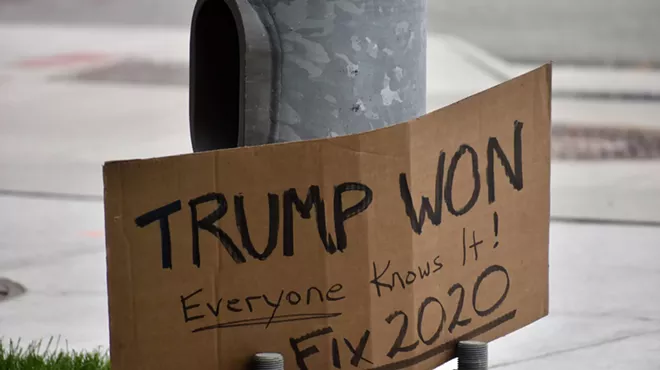 TRUMP WON
Everyone Knows It!
Fix 2020